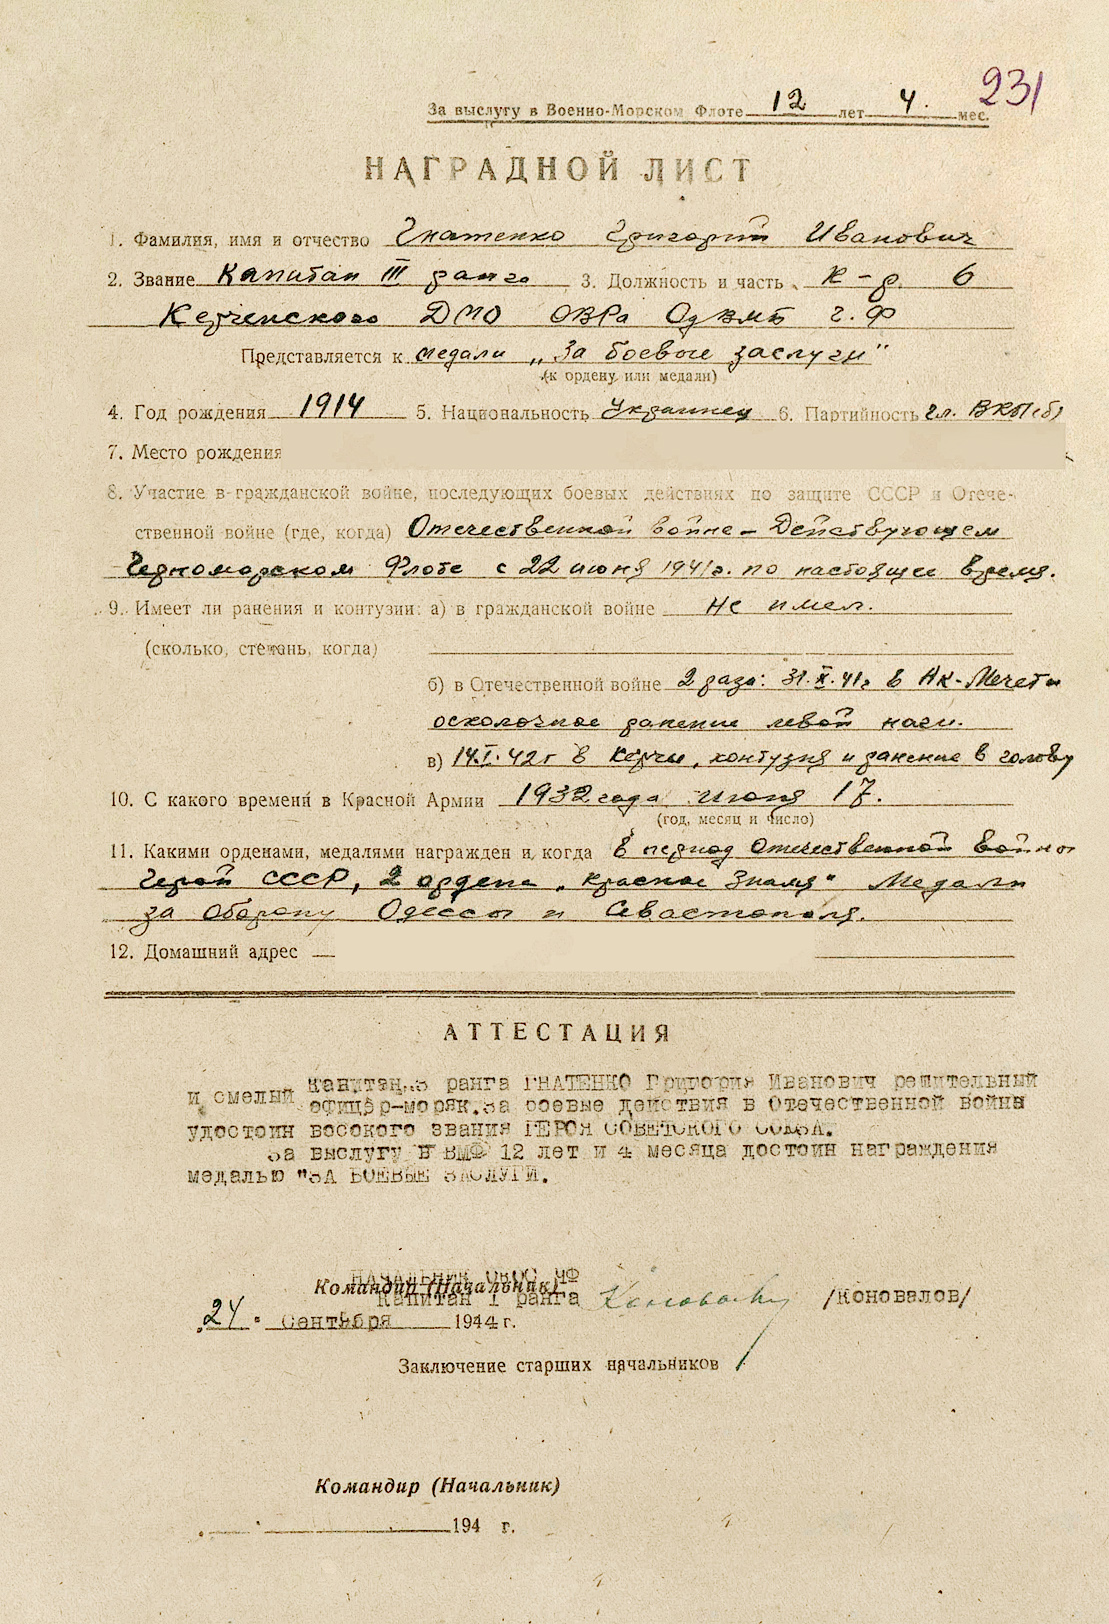 231
За выслугу в Военно-Морском Флоте 12 лет 4. мес.
НАГРАДНОЙ ЛИСТ
1. Фамилия, имя и отчество Гнатенко Григорий Иванович
2. Звание Капитан III ранга 3. Должность и часть к-р. 6
Керченского ДМО ОВРа ОдВМБ Ч.Ф
Представляется к медали „За боевые заслуги"
(к ордену или медали)
4. Год рождения 1914 5. Национальность Украинец 6. Партийность чл. ВКП(б)
7. Место рождения
8. Участие в гражданской войне, последующих боевых действиях по защите СССР и Отече-
ственной войне (где, когда) Отечественной войне – Действующем
Черноморском Флоте с 22 июня 1941г. по настоящее время.
9. Имеет ли ранения и контузии: а) в гражданской войне не имел.
(сколько, степень, когда)
б) в Отечественной войне 2 раза: 31.X.41г в Ак-Мечети
осколочное ранение левой ноги.
в) 14.I.42г в Керчи, контузия и ранение в голову
10. С какого времени в Красной Армии 1932 года июня 17.
(год, месяц и число)
11. Какими орденами, медалями награжден и когда В период Отечественной войны
Герой СССР, 2 ордена „Красное Знамя" Медали
за Оборону Одессы и Севастополя.
12. Домашний адрес
АТТЕСТАЦИЯ
Капитан 3 ранга ГНАТЕНКО Григория Иванович решительный
и смелый офицер-моряк. За боевые действия в Отечественной войне
удостоин восокого звания ГЕРОЯ СОВЕТСКОГО СОЮЗА.
За выслугу в ВМФ 12 лет и 4 месяца достоин награждения
медалью "ЗА БОЕВЫЕ ЗАСЛУГИ.
НАЧАЛЬНИК ОВОС ЧФ
Командир (Начальник)
Капитан 1 ранга Коновалов /КОНОВАЛОВ/
24 " Сентября 1944 г.
Заключение старших начальников
Командир (Начальник)
194 г.